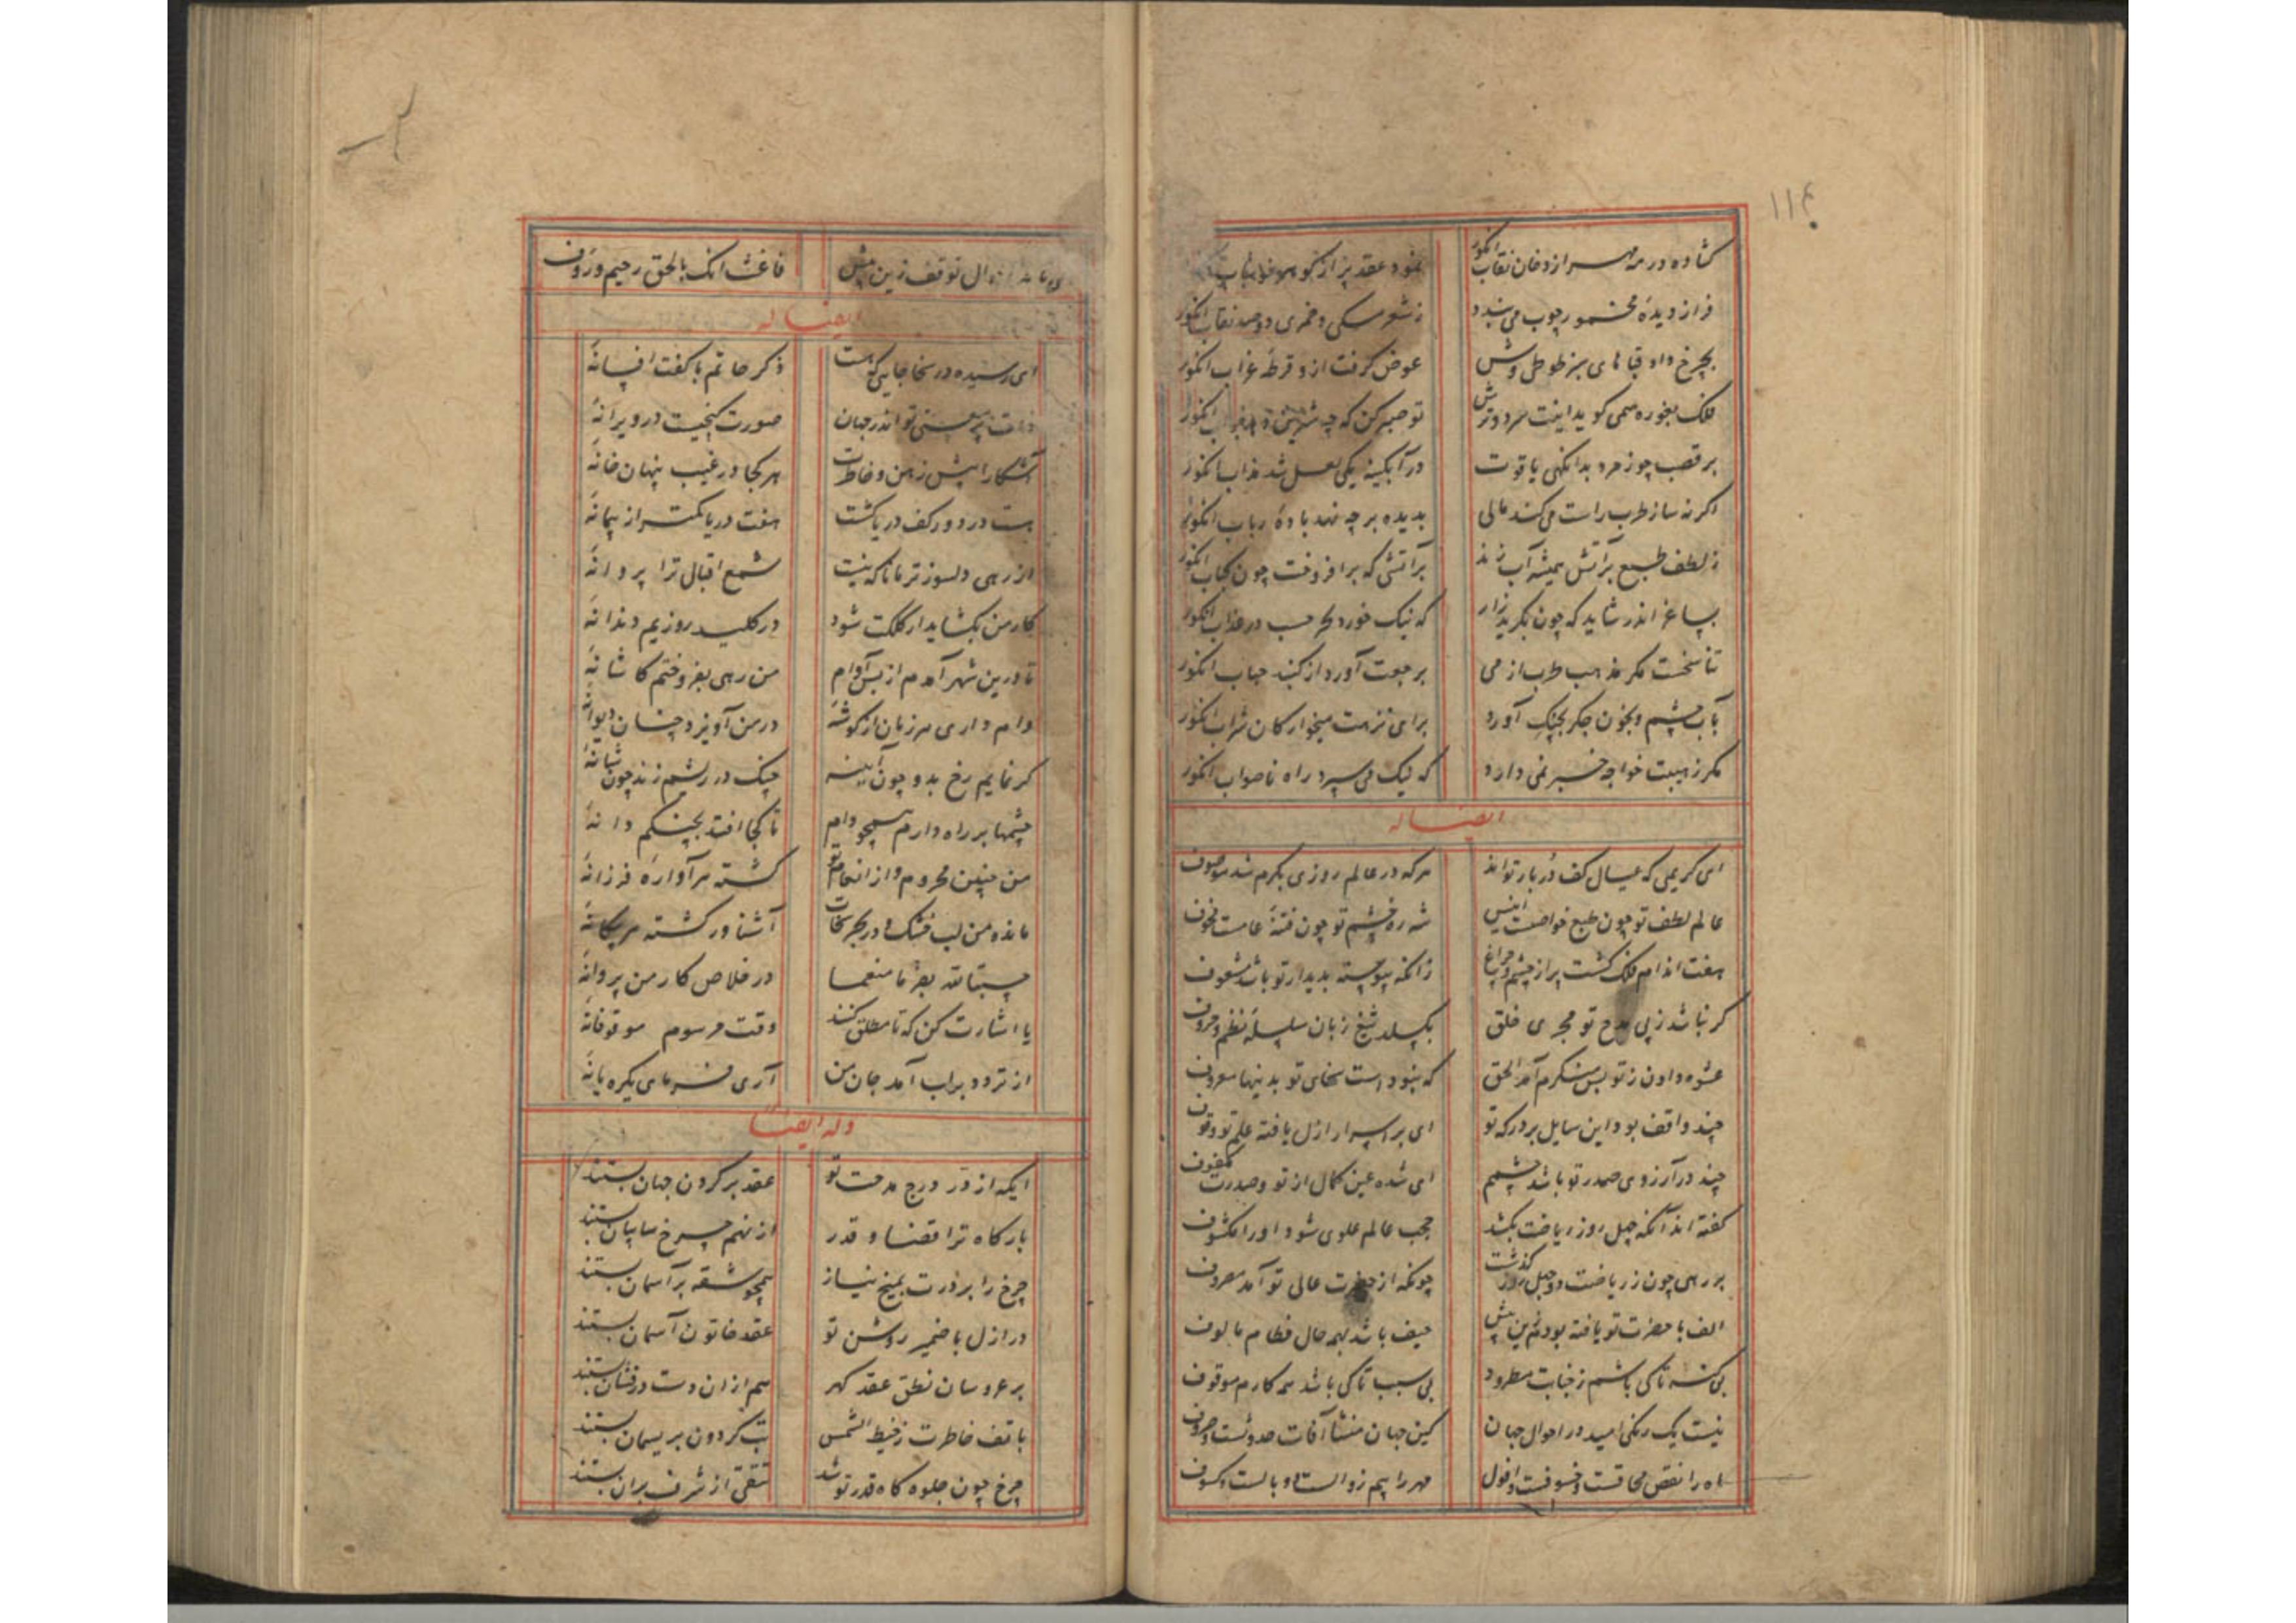 ۱۱۴
کشاده در مه سر از دخان نقاب انکور نمود عقد پر از
فراز دیدهٔ مخمور چوب می‌بندد ز شعر مسکی و خمری دو صد نقاب انکور
بچرخ داد قباهای سبز طوطی وش عوض کرفت ازو قرطهٔ غراب انکور
فلک بغوره همی کوید اینت سرد و ترش تو صبر کن که چه شیرین
بر قصب چو زمرد بدانکهی یاقوت در آبکینه یکی لعل شد مذاب انکور
اکر نه ساز طرب راست می‌کند عالی بدیده بر چه نهد بادهٔ رباب انکور
ز لطف طبع بر آتش همیشه آب زند بر آتشی که برافروخت چون کباب انکور
بساغر اندر شاید که چون بکرید زار که نیک خورد لکد حسب در عذاب انکور
تناسخست مکر مذهب طرب از می برجعت آورد از کنبد حباب انکور
بآب چشم و بخون جکر بچنک آورد برای نزهت میخوارکان شراب انکور
مکر ز هیبت خواجه خبر نمی دارد که لیک می سپرد راه ناصواب انکور
ایضا له
ای کریمی که عیال کف دربار تو اند هرکه در عالم روزی بکرم شد موصوف
عالم لطف تو چون طبع خواصست انیس شه ره خشم تو چون فتنهٔ عامست مخوف
هفت اندام فلک کشت پر از چشم و چراغ زانکه پیوسته بدیدار تو باشد مشعوف
کر نباشد ز پی مدح تو مجری خلق بکسلد تیغ زبان سلسلهٔ نظم و حروف
عشوه دادن ز تو بس منکرم آمد الحق که نبودست سخای تو بدینها معروف
چند واقف بود این سایل بر درکه تو ای بر اسرار ازل یافته علم تو وقوف
چند در آرزوی صدر تو باشد چشمم ای شده عین کمال از تو و صدرت مکفوف
کفته اند آنکه چهل روز ریاضت بکشد حجب عالم علوی شود او را مکشوف
بر رهی چون ز ریاضت دو چهل روز کذشت چونکه از حضرت عالی تو آمد مصروف
الف با حضرت تو یافته بودم زین پیش حیف باشد بهمه حال فطام مالوف
بی کنه تا کی باشم ز جنابت مطرود بی سبب تا کی باشد همه کارم موقوف
نیست یک رنکی امید در احوال جهان کین جهان منشا آفات حدوثست و صروف
ماه را نقص محاقست و خسوفست و افول مهر را بیم زوالست و وبالست و کسوف
توقف زین پیش فاغثنا انک بالحق رحیم و رؤف
ایضا له
ای رسیده در سخا جایی که هست ذکر حاتم با کفت افسانهٔ
تو اندر جهان صورت کنجیست در ویرانهٔ
آشکارا پیش ذهن و خاطرت هر کجا در غیب پنهان خانهٔ
هست در دور کف دریا کشت هفت دریا کمتر از پیمانهٔ
از رهی دلسوزتر مانا که نیست شمع اقبال ترا پروانهٔ
کار من بکشاید ار کلکت شود در کلید روزیم دندانهٔ
تا درین شهر آمدم از بس که وام من رهی بفروختم کاشانهٔ
وام داری هر زمان از کوشهٔ در من آویزد چنان دیوانهٔ
کر نمایم رخ بدو چون آینه چنک در ریشم زند چون شانهٔ
چشمها بر راه دارم همچو دام تا کجا افتد بچنکم دانهٔ
من چنین محروم و از انعام تو کشته هر آوارهٔ فرزانهٔ
مانده من لب خشک و در بحر سخات آشناور کشته هر بیکانهٔ
حسبة لله بفرما منعما در خلاص کار من پروانهٔ
یا اشارت کن که تا مطلق کنند وقت مرسوم موقوفانهٔ
از تردد بر لب آمد جان من آری فرمای یکره یا نهٔ
وله ایضا
ایکه از در درج مدحت تو عقد بر کردن جهان بستند
بارکاه ترا قضا و قدر از نهم چرخ سایبان بستند
چرخ را بر درت بمیخ نیاز همچو شقه بر آسمان بستند
در ازل با ضمیر روشن تو عقد خاتون آسمان بستند
بر عروسان نطق عقد کهر هم از آن دست درفشان بستند
با تف خاطرت ز خیط الشمس تب کردون بریسمان بستند
چرخ چون جلوه کاه قدر تو شد تتقی از شرف بران بستند